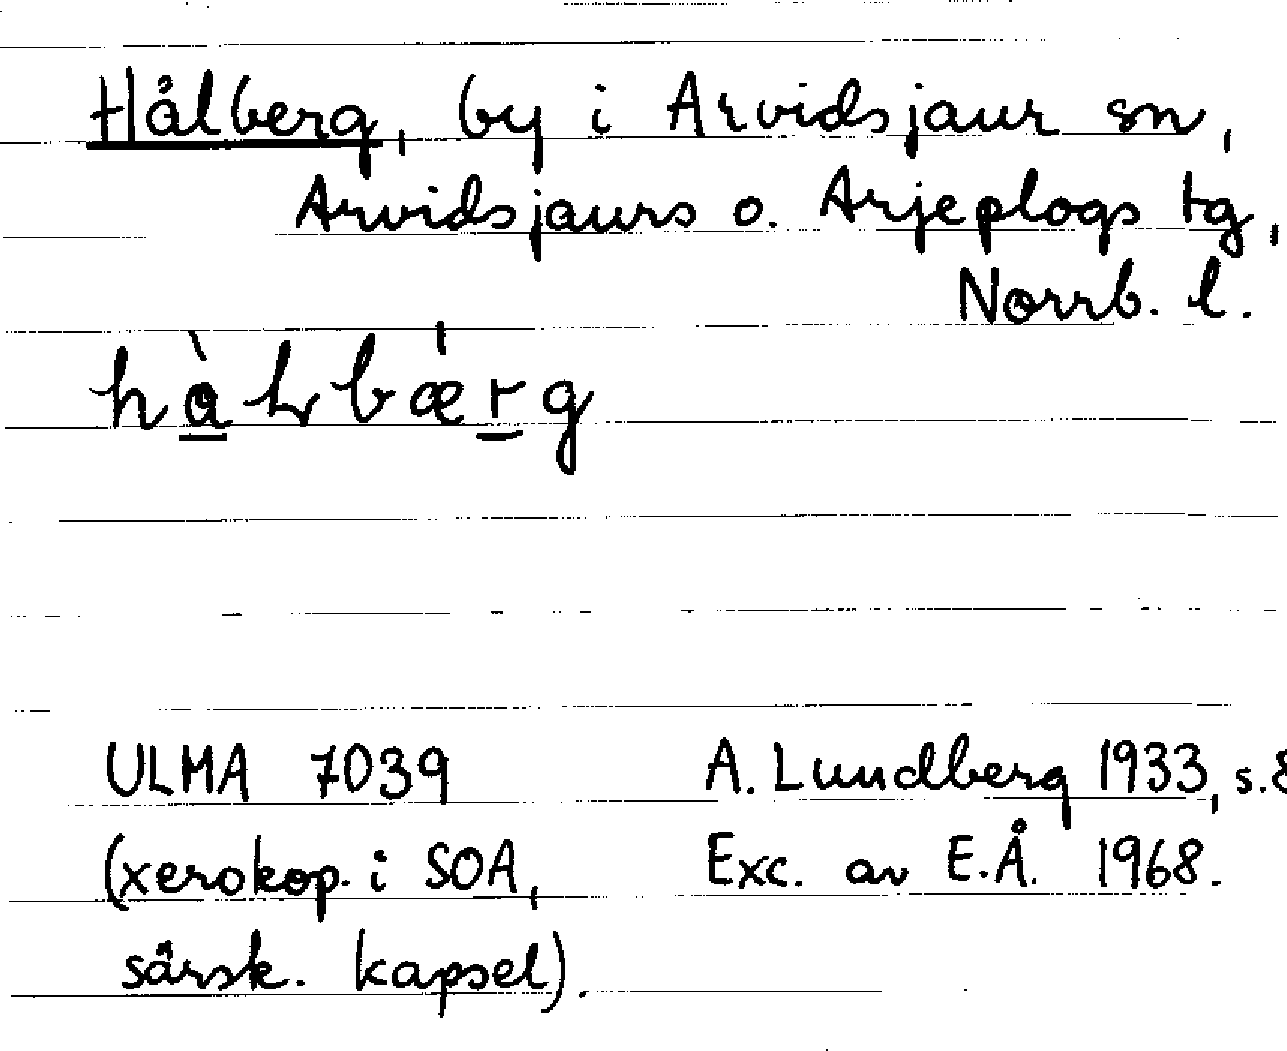 Hålberg, by i Arvidsjaur sn,
Arvidsjaurs o. Arjeplogs tg,
Norrb. l.
ULMA 7039
A. Lundberg 1933, s. 8
(xerokop. i SOA,
Exc. av E.Å. 1968.
särsk. kapsel).